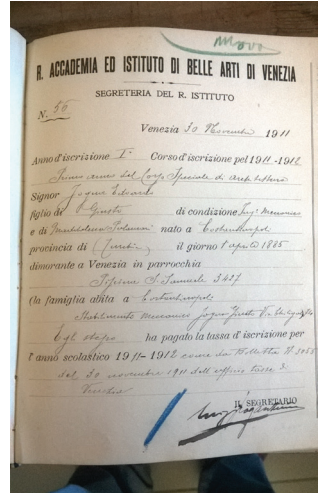 nuovo
R. ACCADEMIA ED ISTITUTO DI BELLE ARTI DI VENEZIA
SEGRETERIA DEL R. ISTITUTO
N. 56
Venezia 30 Novembre 1911
Anno d'iscrizione I° Corso d'iscrizione pel 1911-1912
Primo anno del Corso Speciale di Architettura
Signor Edoardo
figlio di Giusto di condizione Ing. Meccanico
e di nato a Costantinopoli
provincia di (Turchia) il giorno 1 aprile 1885
dimorante a Venezia in parrocchia
S. Samuele 3427
(la famiglia abita a Costantinopoli
Stabilimento meccanico Giusto
Egli stesso ha pagato la tassa d'iscrizione per
l'anno scolastico 1911-1912 come da Bolletta N. 3058
del 30 novembre 1911 dell'ufficio tasse di
Venezia
IL SEGRETARIO